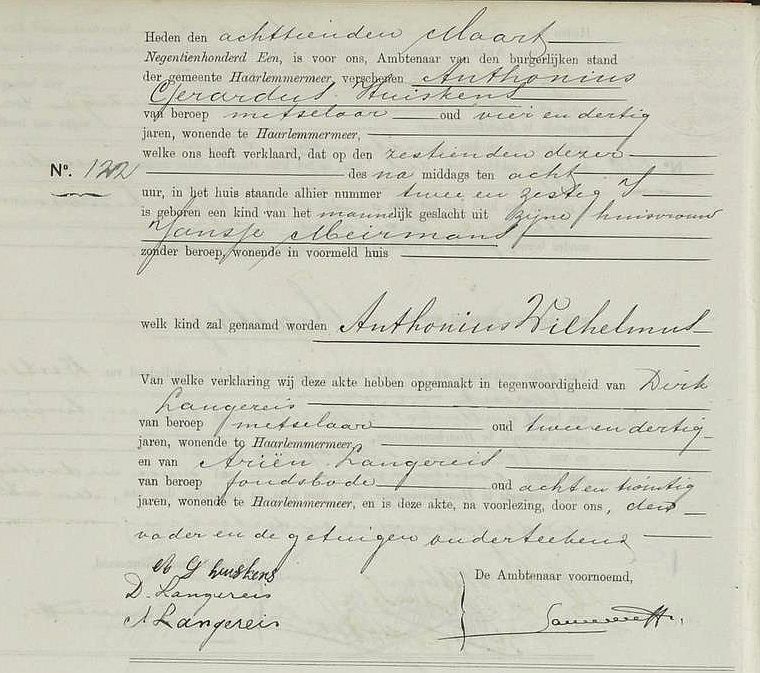 Heden den achttienden Maart
Negentienhonderd Een, is voor ons, Ambtenaar van den burgerlijken stand
der gemeente Haarlemmermeer, verschenen Anthonius
Gerardus Huiskens
van beroep metselaar oud vier en dertig
jaren, wonende te Haarlemmermeer,
welke ons heeft verklaard, dat op den zestienden dezer
No. 122 des na middags ten acht
uur, in het huis staande alhier nummer twee en zestig I
is geboren een kind van het mannelijk geslacht uit zijne huisvrouw
Jansje Meirmans
zonder beroep, wonende in voormeld huis
welk kind zal genaamd worden Anthonius Wilhelmus
Van welke verklaring wij deze akte hebben opgemaakt in tegenwoordigheid van Dirk
Langereis
van beroep metselaar oud twee en dertig
jaren, wonende te Haarlemmermeer,
en van Ariën Langereis
van beroep fondsbode oud acht en twintig
jaren, wonende te Haarlemmermeer, en is deze akte, na voorlezing, door ons, den
vader en de getuigen onderteekend
A G huiskens
D. Langereis
A Langereis
De Ambtenaar voornoemd,